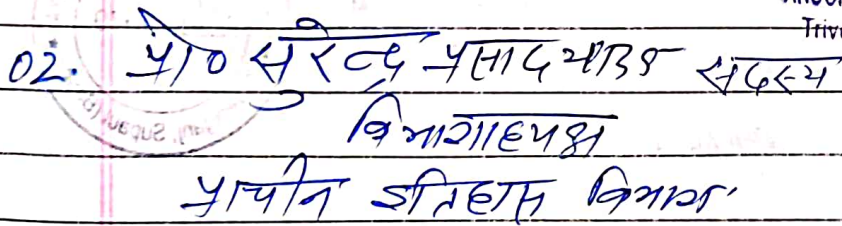 Trive
02. प्रो० सुरेन्द्र प्रसाद यादव सदस्य
विभागाध्यक्ष
प्राचीन इतिहास विभाग